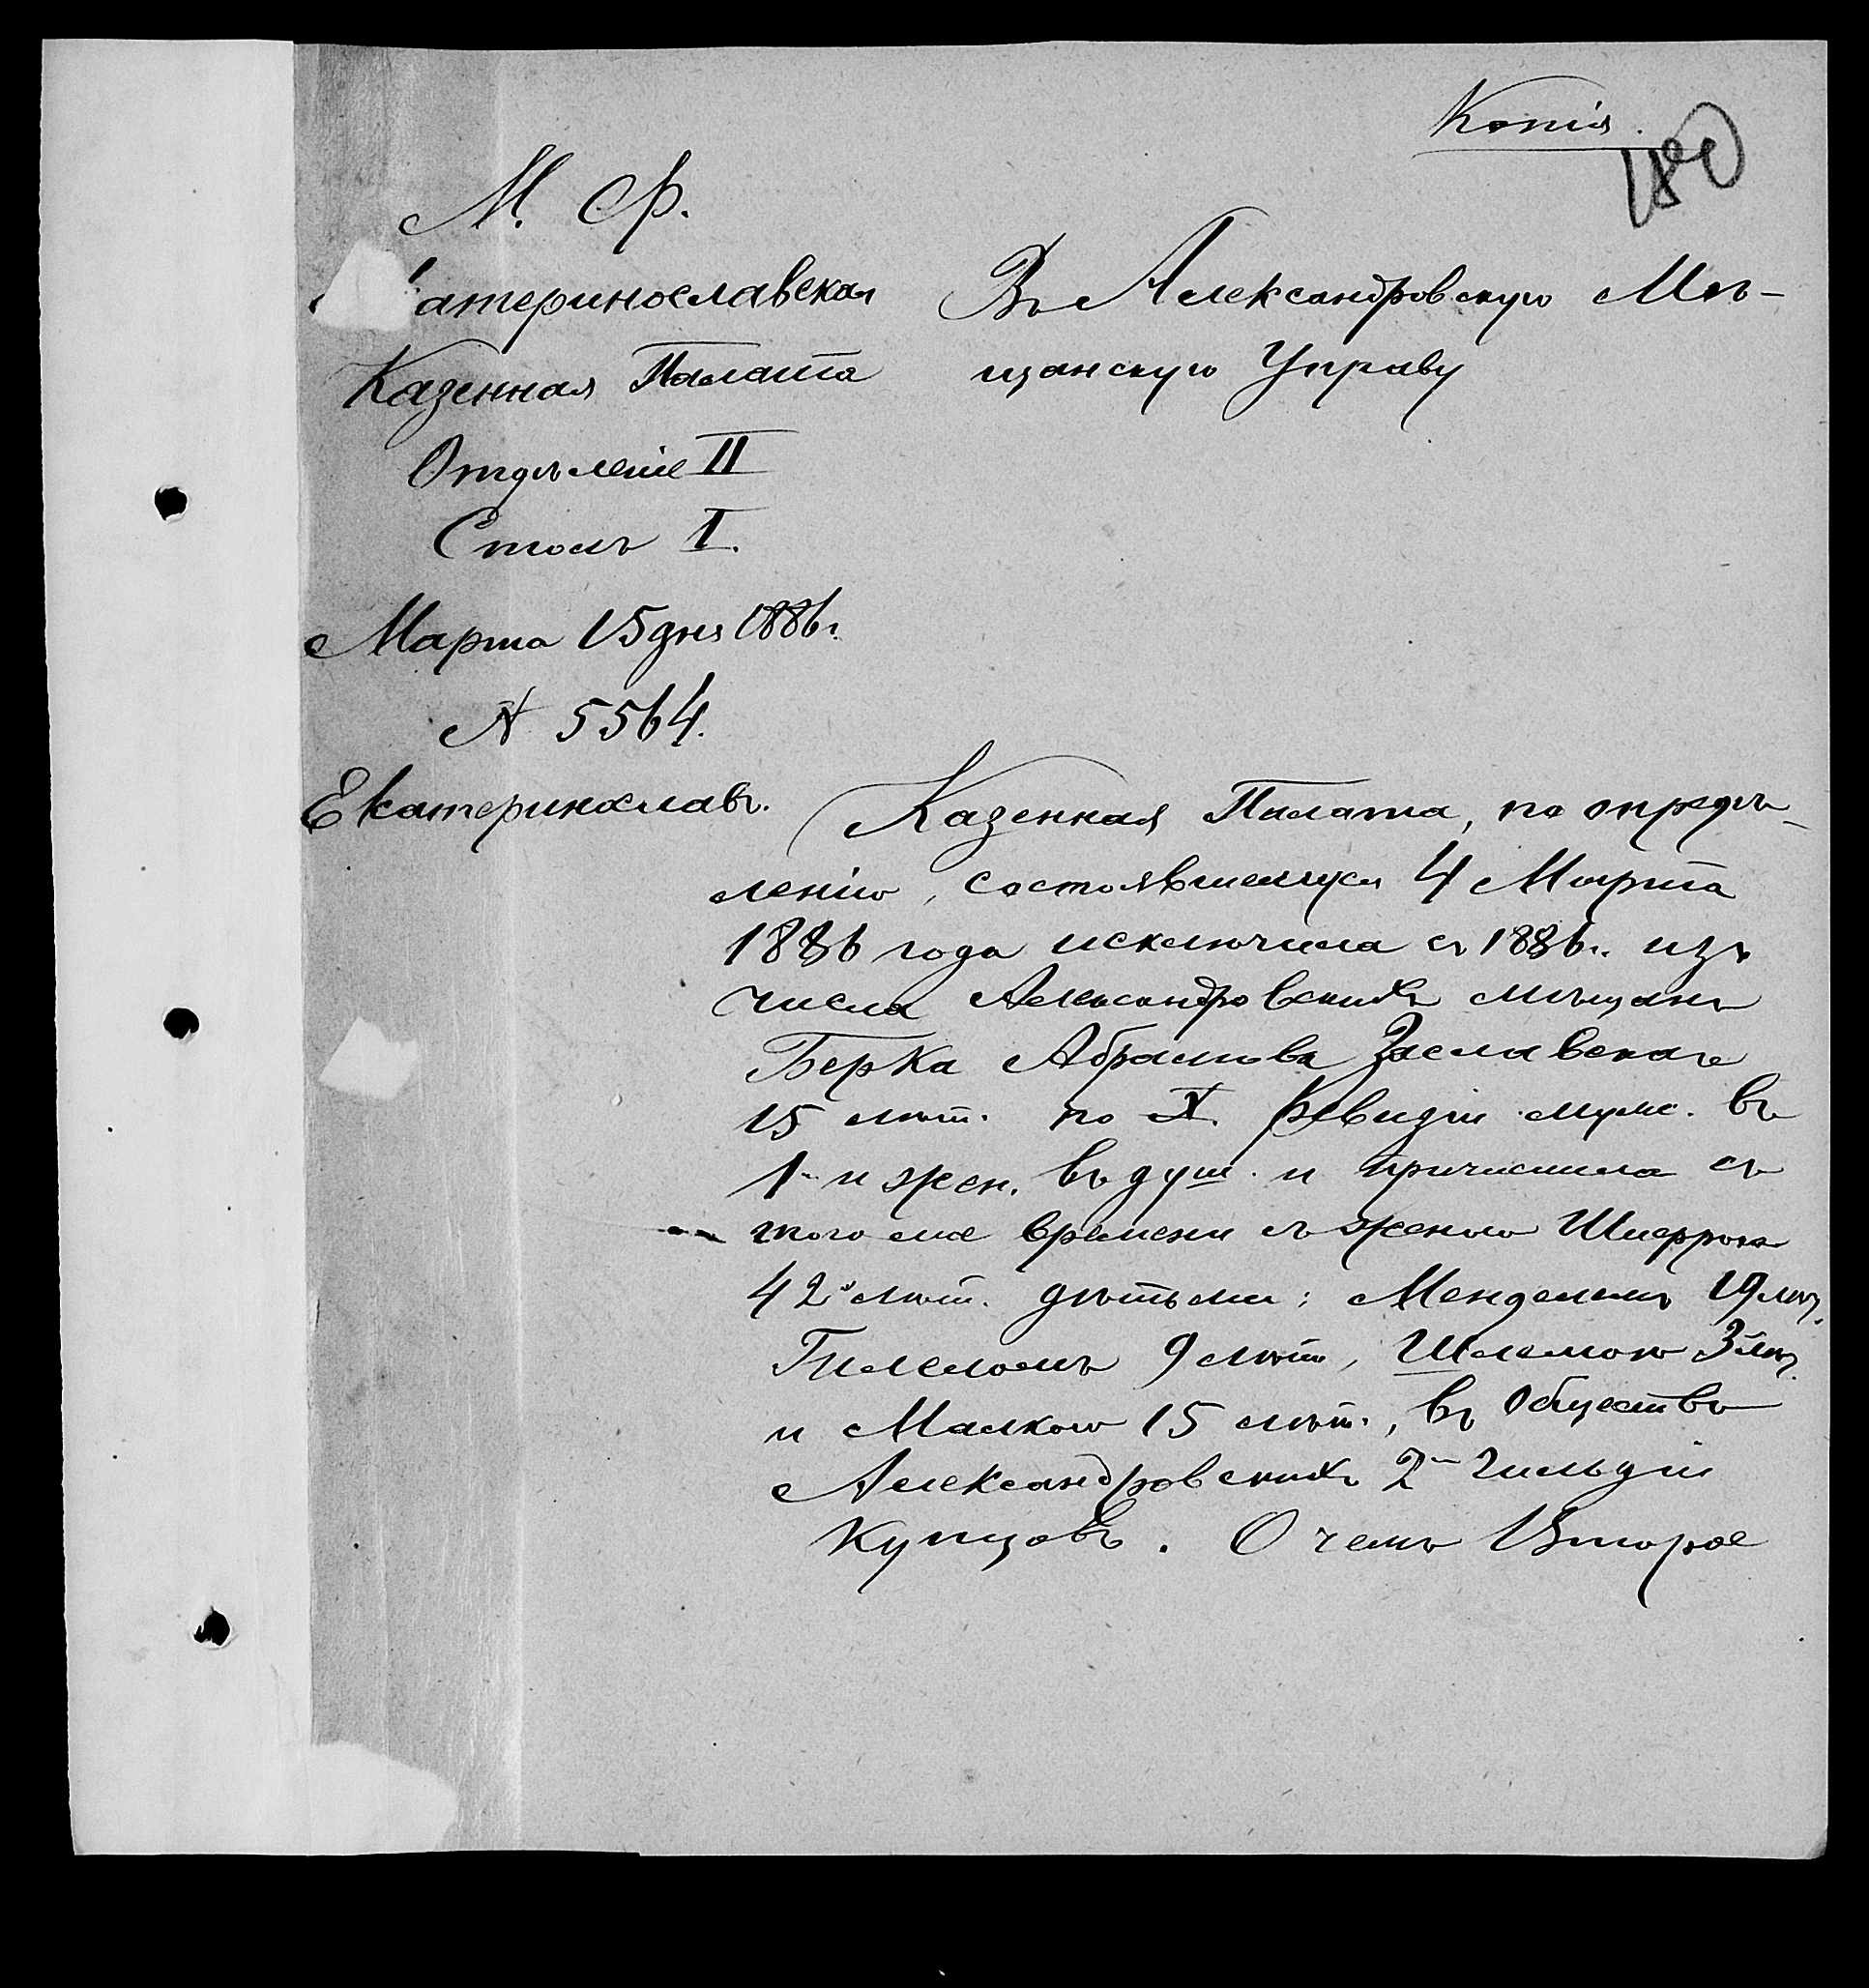 Копія.
180
М. Ф.
Екатеринославская
Казенная Палата
Отдѣленіе II
Столъ I.
Марта 15 дня 1886 г.
№ 5564.
Екатеринославъ.
Въ Александровскую Мѣ-
щанскую Управу
Казенная Палата, по опредѣ-
ленію, состоявшемуся 4 Марта
1886 года исключила съ 1886 г. изъ
числа Александровскихъ мѣщанъ
Берка Абрамова Заславскаго
15 лѣт. по X Ревизіи муж. въ
1 и жен. въ душ. и причислила съ
того же времени съ женою
42 лѣт. дѣтьми: Менделемъ 19 лѣт.
9 лѣт, Шлемою 3 лѣт.
и Малкою 15 лѣт., въ Общество
Александровскихъ 2й гильдіи
купцовъ. О чемъ Второе